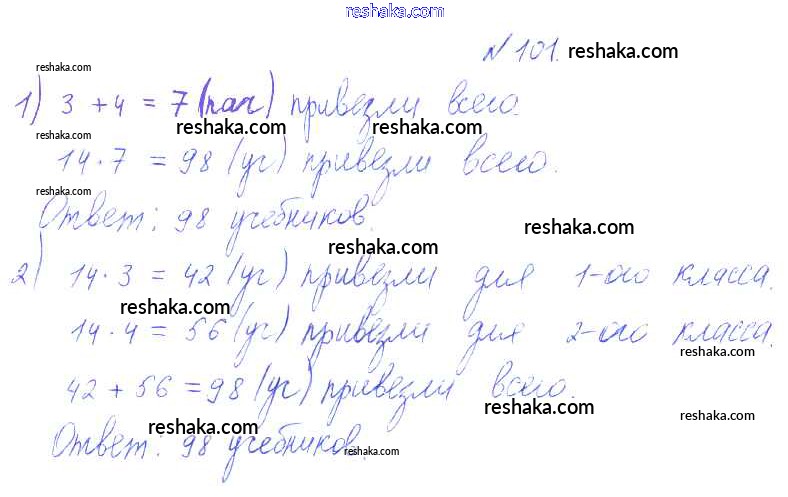 reshaka.com
№101. reshaka.com
reshaka.com
1) 3 + 4 = 7 (пач) привезли всего.
reshaka.com reshaka.com
reshaka.com
14 · 7 = 98 (уч) привезли всего.
reshaka.com
Ответ: 98 учебников.
reshaka.com
reshaka.com
2) 14 · 3 = 42 (уч) привезли для 1-ого класса.
reshaka.com
14 · 4 = 56 (уч) привезли для 2-ого класса.
reshaka.com
42 + 56 = 98 (уч) привезли всего.
reshaka.com
reshaka.com
reshaka.com
Ответ: 98 учебников.
reshaka.com